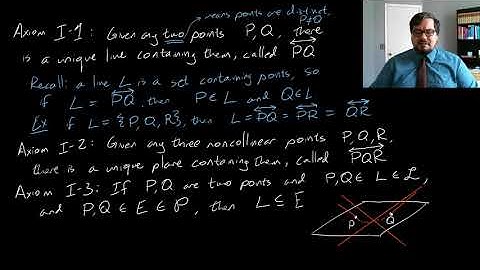 means points are distinct,
P≠Q
Axiom I-1: Given any two points P,Q, there
is a unique line containing them, called \overleftrightarrow{PQ}
Recall: a line L is a set containing points, so
if L = \overleftrightarrow{PQ}, then P∈L and Q∈L
Ex if L = {P,Q,R}, then L = \overleftrightarrow{PQ} = \overleftrightarrow{PR} = \overleftrightarrow{QR}
Axiom I-2: Given any three noncollinear points P,Q,R,
there is a unique plane containing them, called \overleftrightarrow{PQR}
Axiom I-3: If P,Q are two points and P,Q ∈ L ∈ ℒ,
and P,Q ∈ E ∈ 𝒫, then L ⊆ E
P Q